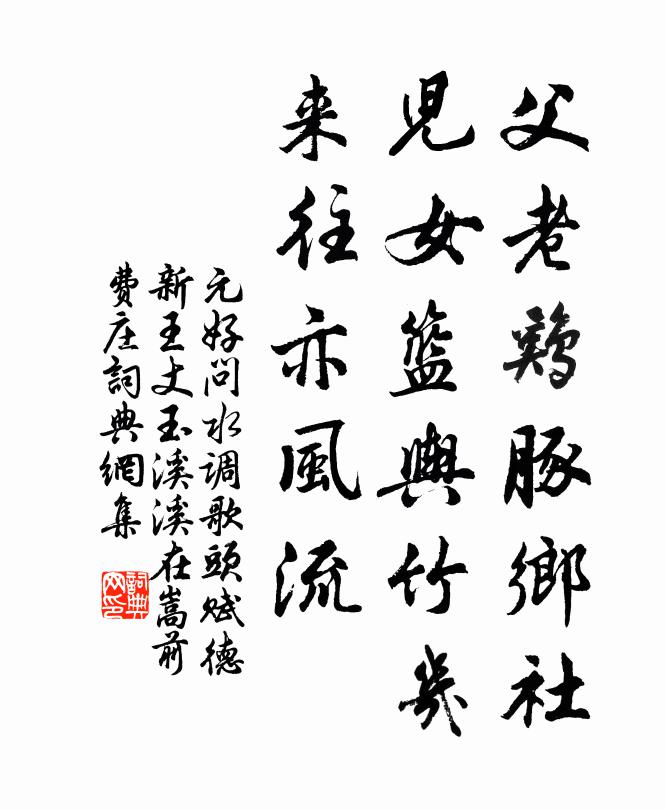 父老鷄豚鄉社
兒女籃輿竹几
来往亦風流
元好问水调歌頭赋德
新王丈玉溪溪在嵩前
費庄詞典網集
詞典网印